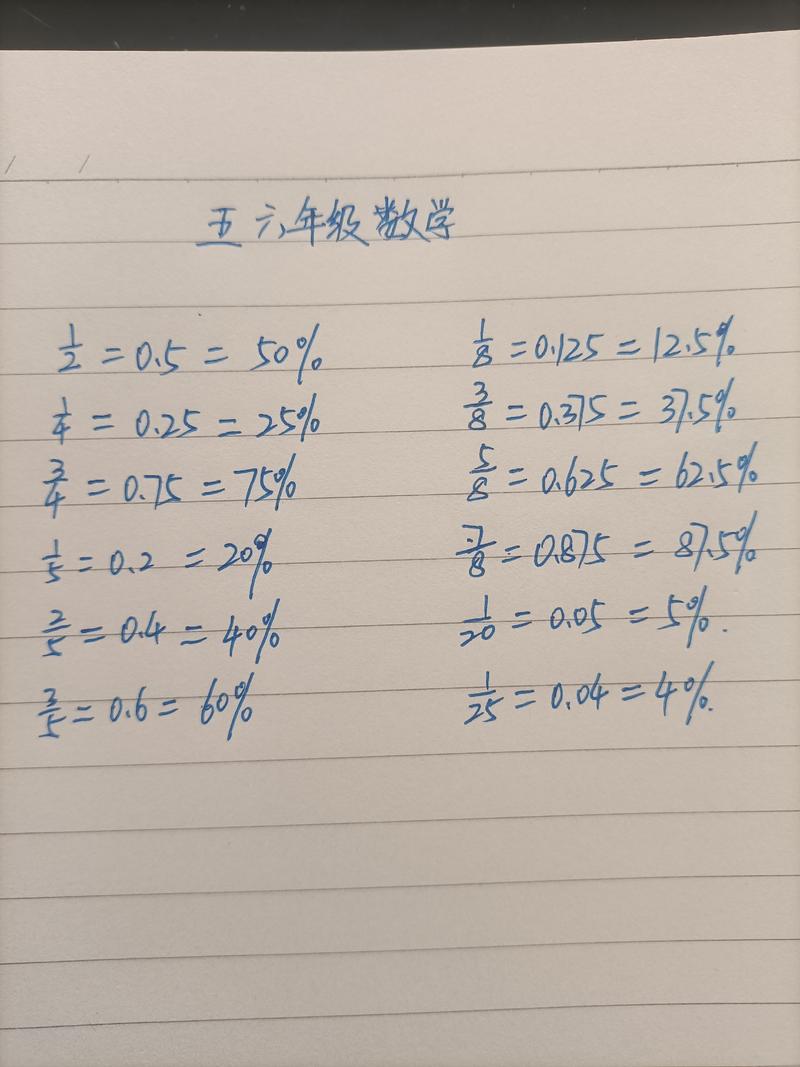 五六年级数学
1/2 = 0.5 = 50%
1/4 = 0.25 = 25%
3/4 = 0.75 = 75%
1/5 = 0.2 = 20%
2/5 = 0.4 = 40%
3/5 = 0.6 = 60%
1/8 = 0.125 = 12.5%
3/8 = 0.375 = 37.5%
5/8 = 0.625 = 62.5%
7/8 = 0.875 = 87.5%
1/20 = 0.05 = 5%.
1/25 = 0.04 = 4%.